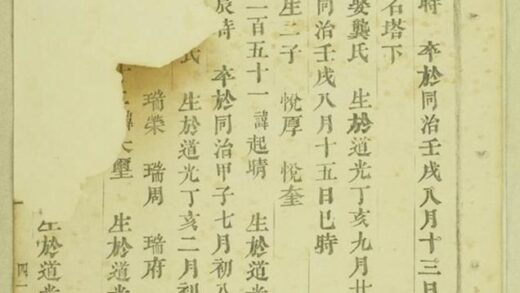 時 卒於同治壬戌八月十三日
石塔下
娶龔氏 生於道光丁亥九月廿
同治壬戌八月十五日巳時
生二子 悅厚 悅奎
二百五十一 諱起晴 生於道光
辰時 卒於同治甲子七月初八
氏 生於道光丁亥二月初
瑞榮 瑞周 瑞府
十二 諱大璽 生於道光
生於道光
四十